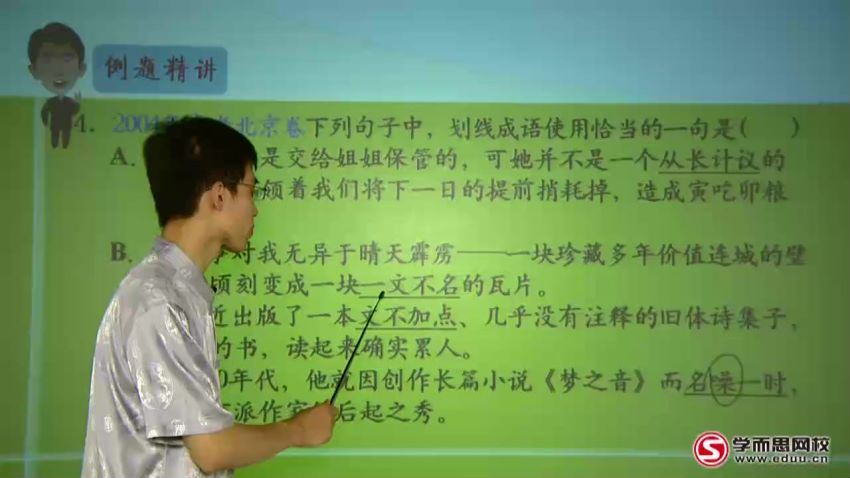 例题精讲
4. 2004 北京卷下列句子中，划线成语使用恰当的一句是( )
A. 是交给姐姐保管的，可她并不是一个从长计议的
着我们将下一日的提前捎耗掉，造成寅吃卯粮
B. 对我无异于晴天霹雳——一块珍藏多年价值连城的璧
顷刻变成一块一文不名的瓦片。
近出版了一本文不加点、几乎没有注释的旧体诗集子，
的书，读起来确实累人。
0年代，他就因创作长篇小说《梦之音》而名噪一时，
派作家 后起之秀。
学而思网校
www.eduu.cn